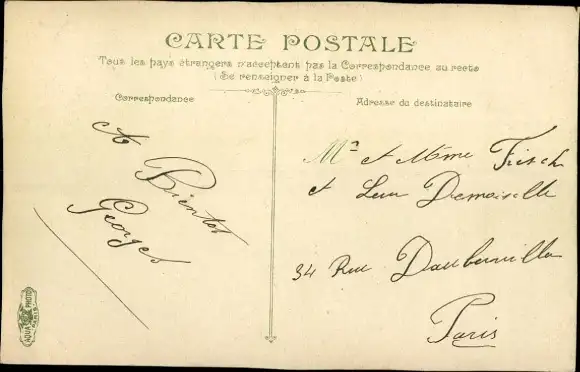 CARTE POSTALE
Tous les pays étrangers n'acceptent pas la Correspondance au recto
(Se renseigner à la Poste)
Correspondance
Adresse du destinataire
A
Bientot
Georges
Mr et Mme Frisch
et Leur Demoiselle
34 Rue
Paris
AQUA PHOTO
PARIS